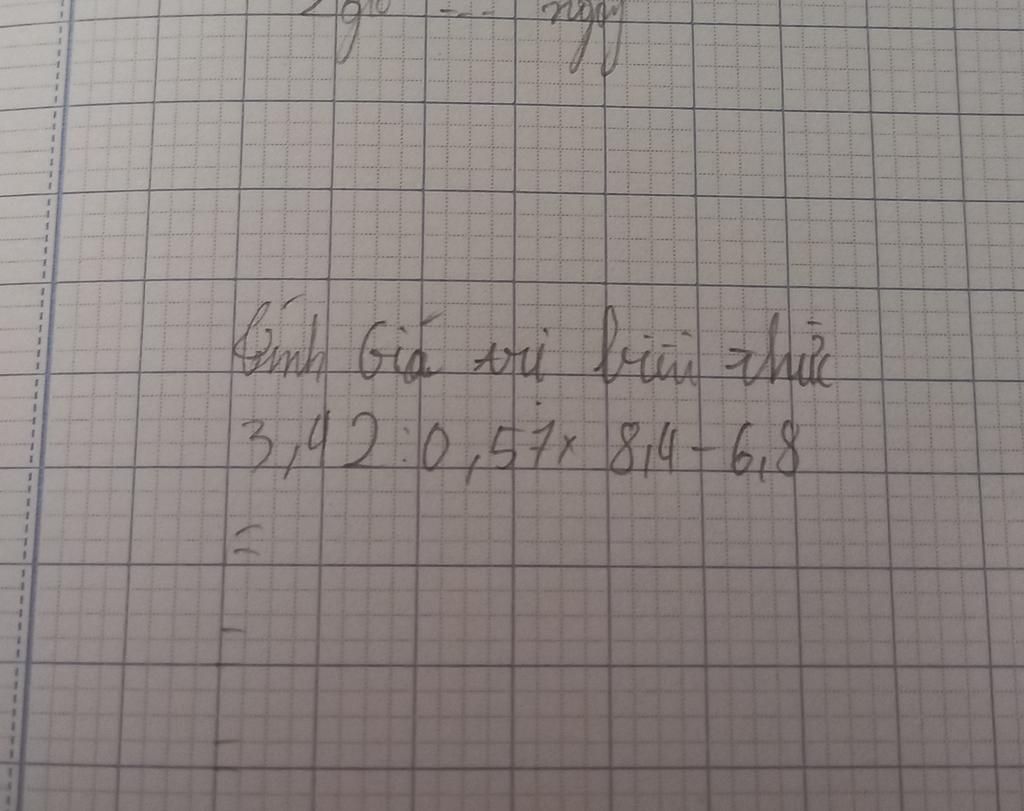 giờ ... ngày
Tính Giá trị biểu thức
3,42:0,57x 8,4-6,8
=